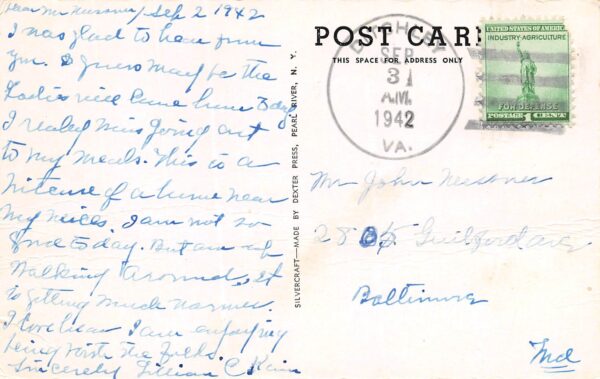 Dear Mr Sep 2 1942
I was glad to hear from
you. I guess maybe the
Ladies will come home today
I really miss going out
to my meals. This is a
picture of a home near
my nieces. I am not so
good today. But am up
walking around, it
is getting much warmer.
I am enjoying
being with the folks.
Sincerely Lillian C
SILVERCRAFT—MADE BY DEXTER PRESS, PEARL RIVER, N. Y.
POST CARD
THIS SPACE FOR ADDRESS ONLY
SEP
31
A.M.
1942
VA.
UNITED STATES OF AMERICA
INDUSTRY-AGRICULTURE
FOR DEFENSE
POSTAGE 1 CENT
Mr John
2805 Guilford Ave
Baltimore
Md